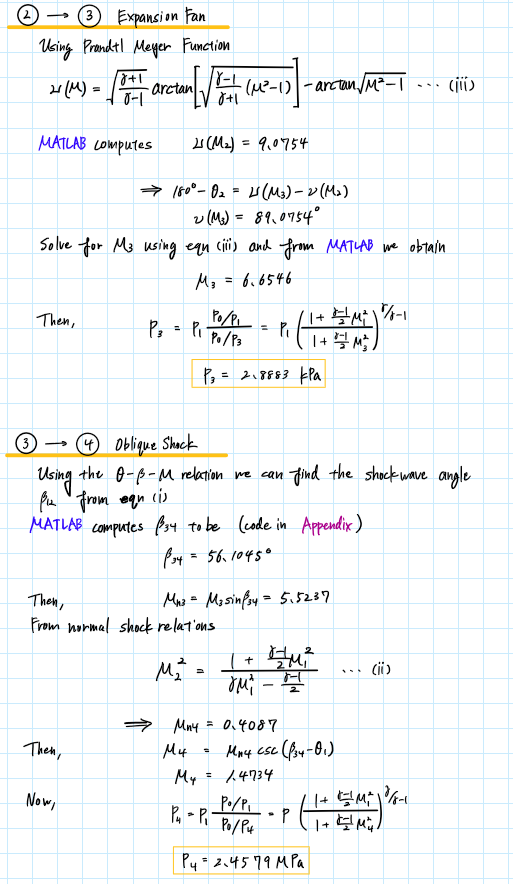 ② → ③ Expansion Fan
Using Prandtl Meyer Function
ν(M) = √((γ+1)/(γ-1)) arctan[√((γ-1)/(γ+1) (M²-1))] - arctan√(M²-1) ... (iii)
MATLAB computes ν(M₂) = 9.0754
⇒ 180° - θ₂ = ν(M₃) - ν(M₂)
ν(M₃) = 89.0754°
Solve for M₃ using eqn (iii) and from MATLAB we obtain
M₃ = 6.6546
Then, P₃ = P₁ (P₀/P₁)/(P₀/P₃) = P₁ ((1 + (γ-1)/2 M₁²)/(1 + (γ-1)/2 M₃²))^(γ/γ-1)
P₃ = 2.8883 kPa
③ → ④ Oblique Shock
Using the θ-β-M relation we can find the shockwave angle
β₁₂ from eqn (i)
MATLAB computes β₃₄ to be (code in Appendix)
β₃₄ = 56.1045°
Then, Mn3 = M₃ sinβ₃₄ = 5.5237
From normal shock relations
M₂² = (1 + (γ-1)/2 M₁²)/(γM₁² - (γ-1)/2) ... (ii)
⇒ Mn4 = 0.4087
Then, M₄ = Mn4 csc(β₃₄-θ₁)
M₄ = 1.4734
Now, P₄ = P₁ (P₀/P₁)/(P₀/P₄) = P ((1 + (γ-1)/2 M₁²)/(1 + (γ-1)/2 M₄²))^(γ/γ-1)
P₄ = 2.4579 MPa